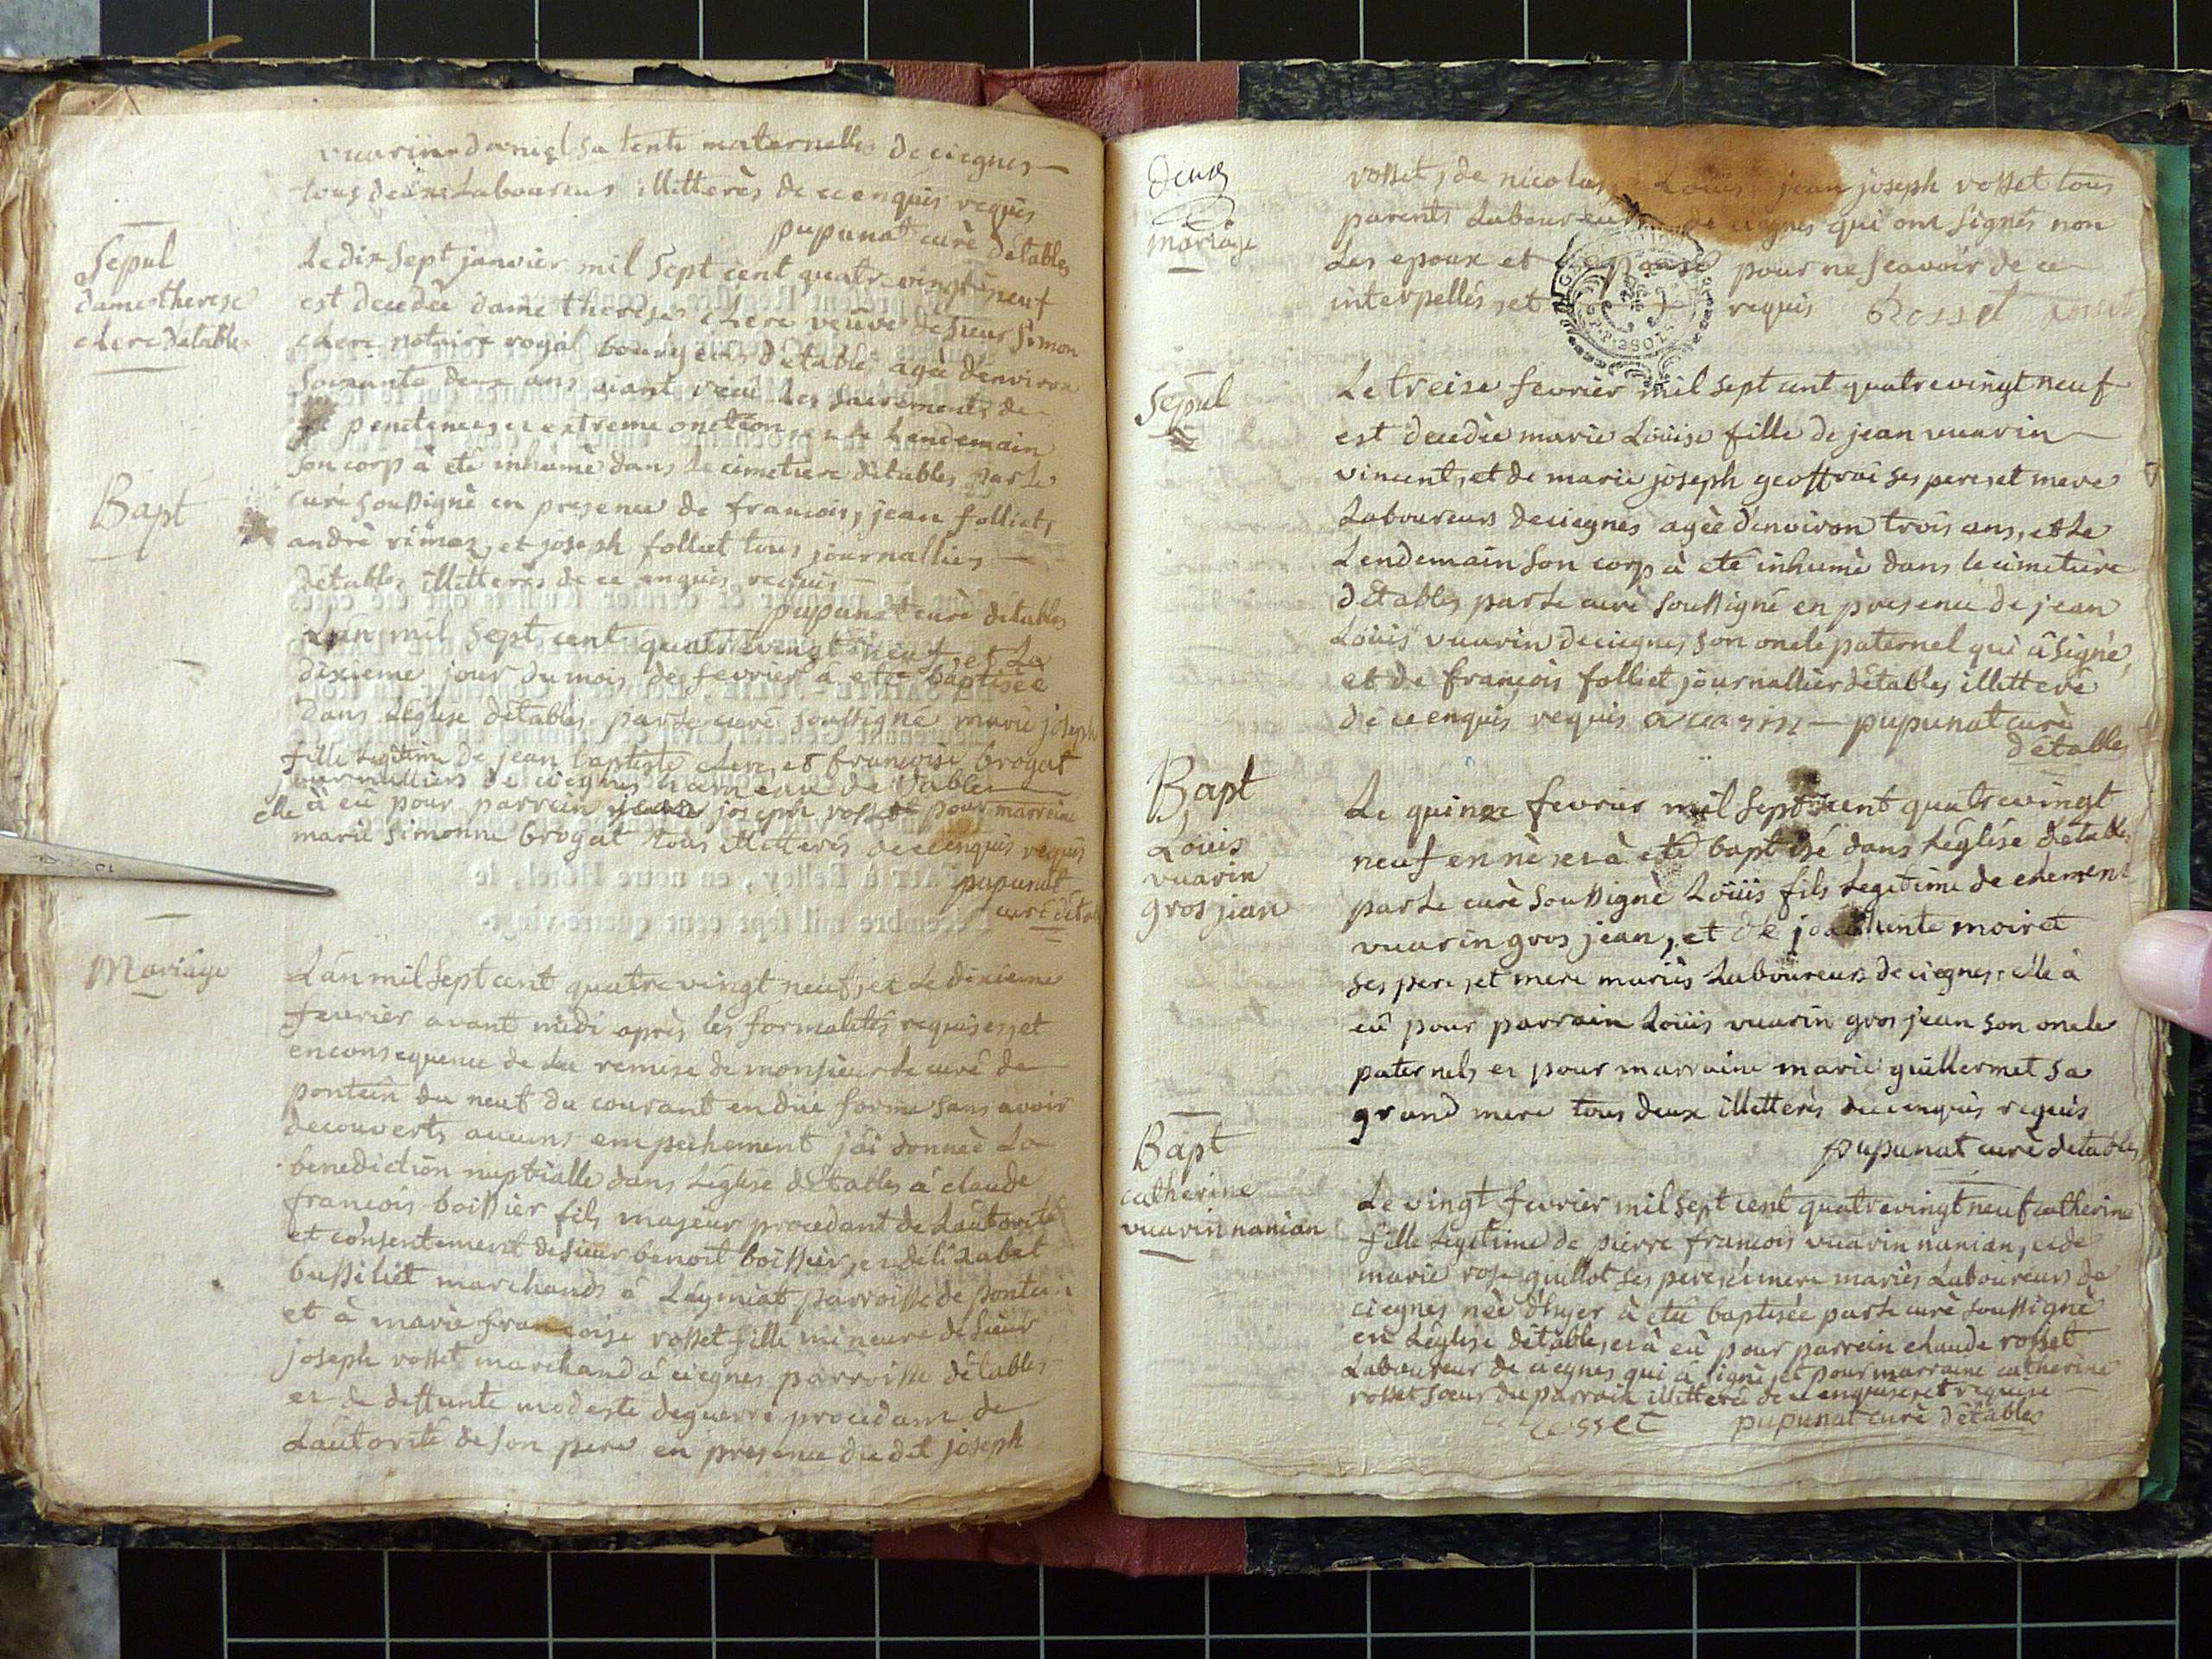 vuarin daniel sa tente maternelle de ciegnes
tous deux Laboureurs illitterès de ce enquis requis
pupunat curè détables
Sepul
dame therese
clerc détables
Le dix Sept janvier mil Sept cent quatrevingt neuf
est decedèe dame therese clerc veûve de sieur Simon
clerc notaire royal bourgeois détables agèe d'environ
soixante deux ans aiant recû les sacrements de
penitence, et extreme onction, et le Lendemain
Son corp à eté inhumè dans le cimetiere détables par le
curé soussignè en presence de francois, jean folliet,
andrè rimoz, et joseph folliet tous journalliers
détables illitterès de ce enquis requis
pupunat curè détables
Bapt
L'an mil Sept cent quatrevingt neuf, et La
dixieme jour du mois de fevrier à eté baptisèe
dans L'eglise détables par le curé soussigné marie joseph
fille Legitime de jean baptiste clerc, et francoise brogat
journalliers de ciegnes hameau détables
elle à eû pour parrain joseph rosset pour marreine
marie simonne brogat tous illitterés de ce enquis requis
pupunat
curé détables
Mariâge
L'an mil Sept cent quatre vingt neuf, et Le dixieme
fevrier avant midi après les formalités requises, et
en consequence de La remise de monsieur le curé de
pontcin du neuf du courant en düe forme sans avoir
decouverts aucuns empechement j'ai donneè La
benediction nuptialle dans L'église détables à claude
francois boissier fils majeur procedant de L'autorité
et consentement de sieur benoit boissier, et d'elizabet
bussiliet marchands à Léymiat parroisse de pontcin
et à marie francoise rosset fille mineure de sieur
joseph rosset marchand à ciegnes parroisse détables
et de deffunte modeste deguerre procedant de
L'autorité de son pere en presence du dit joseph
Deux
mariâge
rosset, de nicolas, Loüis jean joseph rosset tous
parents Laboureurs de ciegnes qui ont signés non
Les epoux et pour ne scavoir de ce
interpellés, et requis Rosset
Sepul
Le treise fevrier mil sept cent quatrevingt neuf
est decedèe marie Loüise fille de jean vuarin
vincent, et de marie joseph geoffrai ses pere, et mere
Laboureurs de ciegnes agèe d'environ trois ans, et Le
Lendemain son corp à eté inhumè dans le cimetiere
détables par Le curè soussigné en presence de jean
Loüis vuarin de ciegnes son oncle paternel qui à signé,
et de françois folliet journallier détables illitteré
de ce enquis requis vuarin pupunat curè
détables
Bapt
Loüis
vuarin
gros jean
Le quinze fevrier mil Sept cent quatrevingt
neuf en nè, et à eté baptisé dans L'église détables
par Le curè soussignè Loüis fils Legitime de clement
vuarin gros jean, et de moiret
ses pere, et mere mariès Laboureurs de ciegnes elle à
eû pour parrain Loüis vuarin gros jean son oncle
paternel, et pour marraine marie guillermet sa
grand mere tous deux illitterès de ce enquis requis
pupunat curè détables
Bapt
catherine
vuarin nanian
Le vingt fevrier mil sept cent quatrevingt neuf catherine
fille Legitime de pierre francois vuarin nanian, et de
marie rose guillot ses pere, et mere mariès Laboureurs de
ciegnes nèe d'hyer à etée baptisèe par Le curè soussignè
en L'église détables, et à eû pour parrein claude rosset
Laboureur de ciegnes qui à signé, et pour marraine catherine
rosset sœur du parrain illitteré de ce enquise, et requise
rosset pupunat curè détables